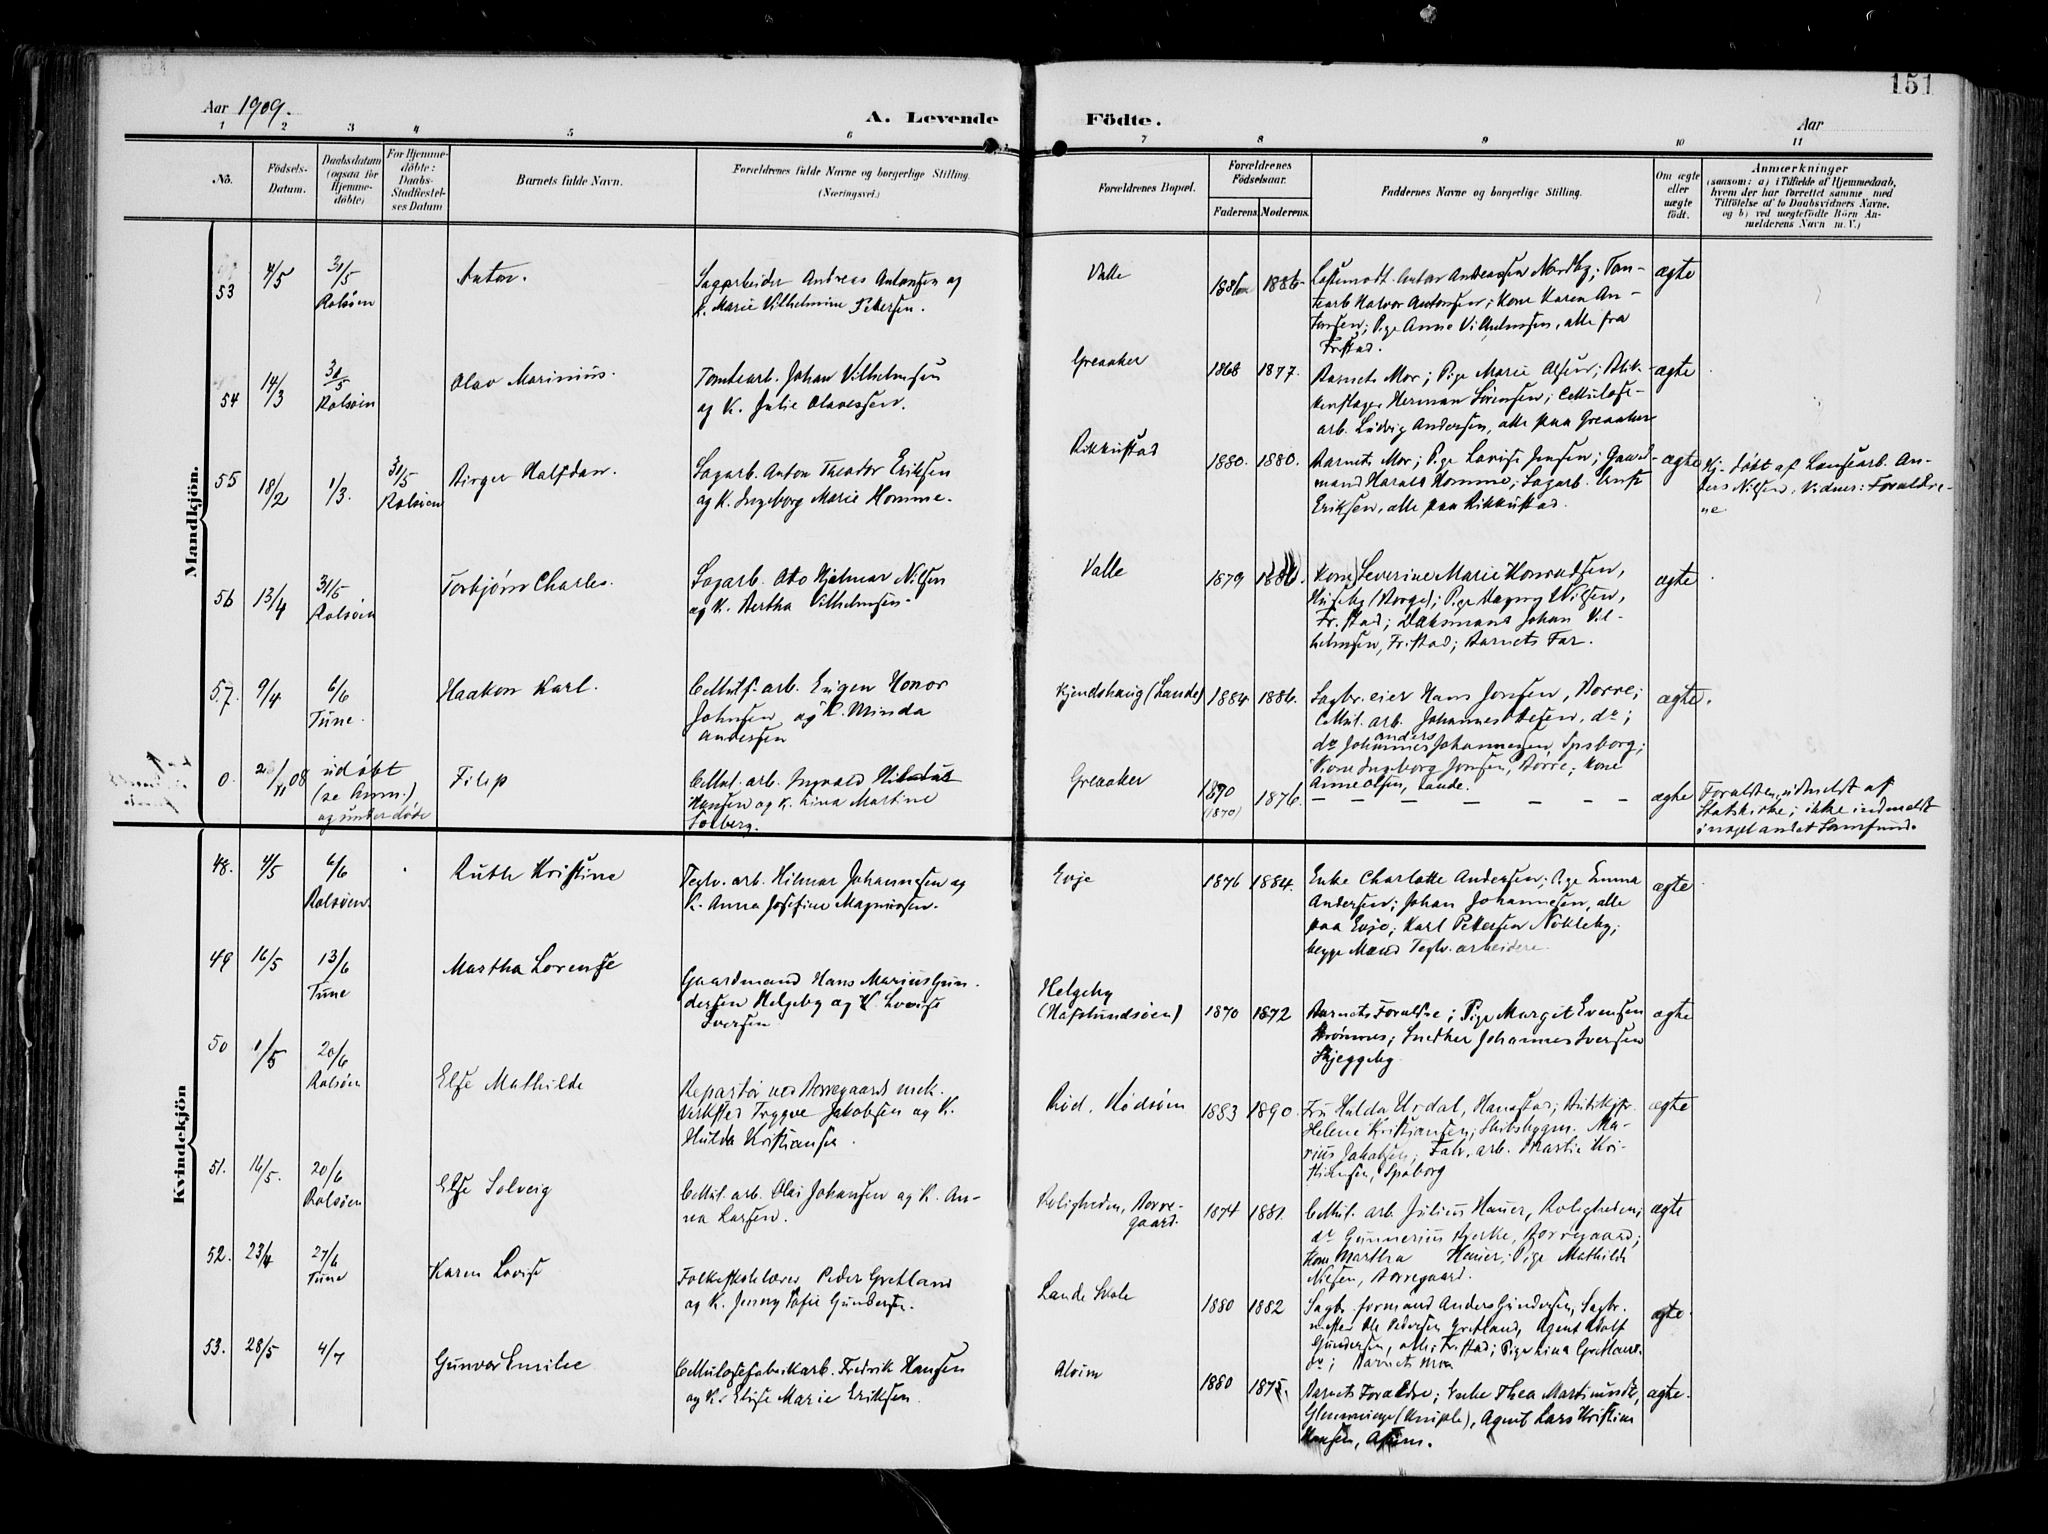 151
Aar 1909.
A. Levende Födte.
Aar
1 2 3 4 5 6 7 8 9 10 11
No.
Födsels-
Datum.
Daabsdatum
(ogsaa for
Hjemme-
döbte)
For Hjemme-
döbte:
Daabs-
Stadfæstel-
ses Datum
Barnets fulde Navn.
Forældrenes fulde Navne og borgerlige Stilling.
(Næringsvei.)
Forældrenes Bopæl.
Forældrenes
Födselsaar.
Faderens. Moderens.
Faddernes Navne og borgerlige Stilling.
Om ægte
eller
uægte
födt.
Anmærkninger
(saasom: a) i Tilfælde af Hjemmedaab,
hvem der har forrettet samme med
Tilföielse af to Daabsvidners Navne,
og b) ved uægtefödte Börn An-
melderens Navn m. V.)
Mandkjön.
53
4/5
31/5
Rolsøen
Anton.
Sagarbeider Andreas Antonsen og
K. Marie Vilhelmine Petersen.
Valle
1886 1886
Anton Andreassen Nordby; Tom-
tearb Halvor Antonsen; Kone Karen An-
tonsen; Pige Anna Vilhelmsen, alle fra
Fr.stad.
ægte
54
14/3
31/5
Rolsøen
Olav Marinius.
Tomtearb. Johan Vilhelmsen
og K. Julie Olavessen.
Greaaker
1868 1877.
Barnets Mor; Pige Marie Olsen; Blik-
kenslager Herman Sørensen; Cellulose-
arb. Ludvig Andersen, alle paa Greaaker
ægte
55
18/2
1/3.
31/5
Rolsøen
Birger Halfdan.
Sagarb. Anton Theodor Eriksen
og K. Ingeborg Marie Homme.
Rikkustad
1880. 1880.
Barnets Mor; Pige Lovise Jensen; Gaard-
mand Harald Homme; Sagarb.
Eriksen, alle paa Rikkustad.
ægte
Hj. døbt af An-
ders Nilsen. Vidner: Forældre-
ne
56
13/4
31/5
Rolsøen
Torbjørn Charles.
Sagarb. Oto Hjalmar Nilsen
og K. Bertha Vilhelmsen.
Valle
1879 1880.
Kone Severine Marie Konradsen,
Huseby (Borge); Pige Dagny Nilsen,
Fr.stad; Johan Vil-
helmsen, Fr.stad; Barnets Far.
ægte
57.
9/4
6/6
Tune.
Haakon Karl.
Cellulf. arb. Eugen Honor
Johnsen og K. Minda
Andersen
Kjendshaug (Lande)
1884 1886.
Sagbr. eier Hans Jensen, Borre;
Cellul. arb. Johannes Olsen, do;
do Johannes anders Johannesen, Spsborg;
Kone Ingeborg Jensen, Borre; Kone
Anne Olsen, Lande.
ægte.
0.
/11 08
udøbt
(se Anm.)
og under døde
Filip
Cellul. arb. Ingvald
Hansen og K. Lina Martine
Solberg.
Greaaker
1890
(1870)
1876.
— — — — — — —
ægte
Forældrene udmeldt af
Statskirke; ikke indmeldt
i noget andet Samfund.
Kvindekjön
48.
4/5
6/6
Rolsøen.
Ruth Kristine
Teglv. arb. Hilmar Johannesen og
K. Anna Josefine Magnussen.
Evje
1876 1884.
Enke Charlotte Andersen; Pige Emma
Andersen; Johan Johannesen, alle
paa Evje; Karl Pettersen Nøkleby;
begge Mænd Teglv. arbeidere.
ægte
49
16/5
13/6
Tune
Martha Lorense
Gaardmand Hans Marius Gun-
dersen Helgeby og K. Lovise
Iversen
Helgeby
(Hafslundsøen)
1870 1872
Barnets Forældre; Pige Margit Evensen
Strømnes; Snedker Johannes Iversen
Skjeggeby
ægte
50
1/5
20/6
Rolsøen
Else Mathilde
Repartør ved Borregaards mek.
Verksted Trygve Jakobsen og K.
Hulda Kristiansen.
Rød, Rødsøen
1883 1890.
Fru Hulda Urdal, Butikjfr.
Helene Kristjansen; Skibsbygm. Ma-
rius Jakobsen; Fabr. arb. Martin Kri-
stiansen, Spsborg
ægte
51.
16/5.
20/6
Rolsøen
Else Solveig
Cellul. arb. Olai Johansen og K. An-
na Larsen.
Roligheden, Borre-
gaard.
1874 1881.
Cellul. arb. Julius Hauer, Roligheden;
do Gunnerius Bjerke, Borregaard;
Kone Martha Hauer; Pige Mathilde
Nilsen, Borregaard.
ægte
52.
23/4
27/6
Tune
Karen Lovise
Folkeskolelærer Peder Gretland
og K. Jenny Sofie Gundersen.
Lande Skole
1880 1882
Sagbr. formand Anders Gundersen, Sagbr.
mester Ole Pedersen Gretland, Agent Adolf
Gundersen, alle Fr.stad; Pige Lina Gretland
do; Barnets Mor
ægte.
53.
28/5
4/7
Gunvor Emilie
Cellulosefabrikarb. Fredrik Hansen
og K. Elise Marie Eriksen.
Alvim
1880 1875.
Barnets Forældre; Enke Thea Martinsen,
Glemminge Agent Lars Kristian
Hansen, Alvim.
ægte.